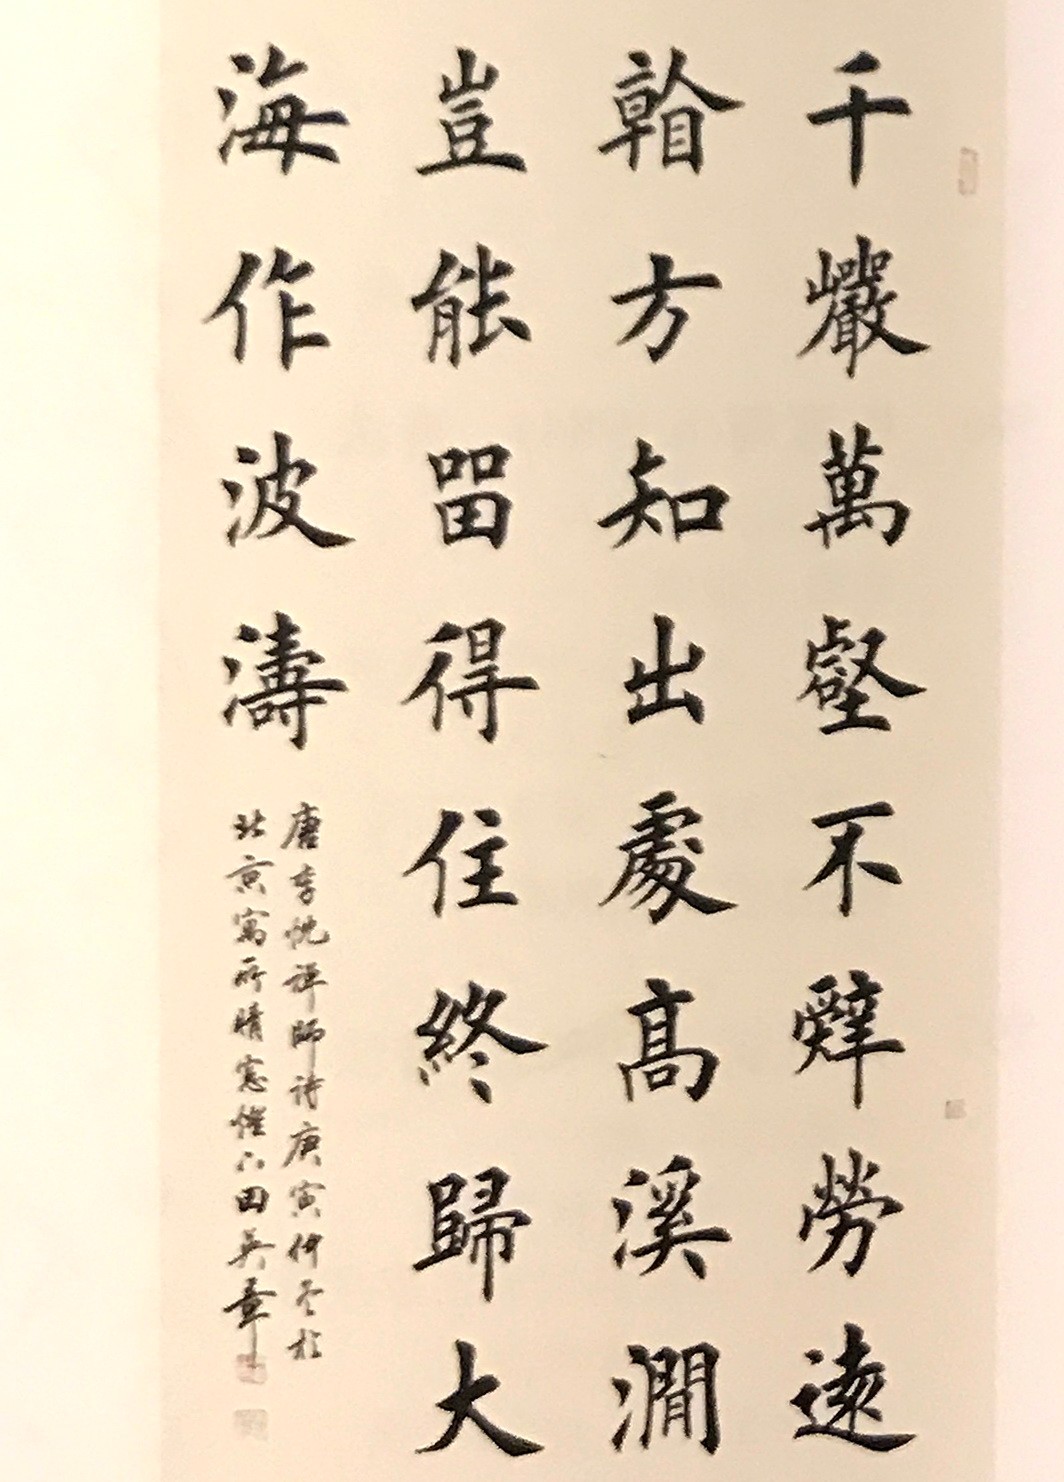 千巖萬壑不辭勞遠
㸔方知出處高溪澗
豈能畱得住終歸大
海作波濤
唐李忱禪師詩庚寅仲冬於
北京寓所晴窗 田英章